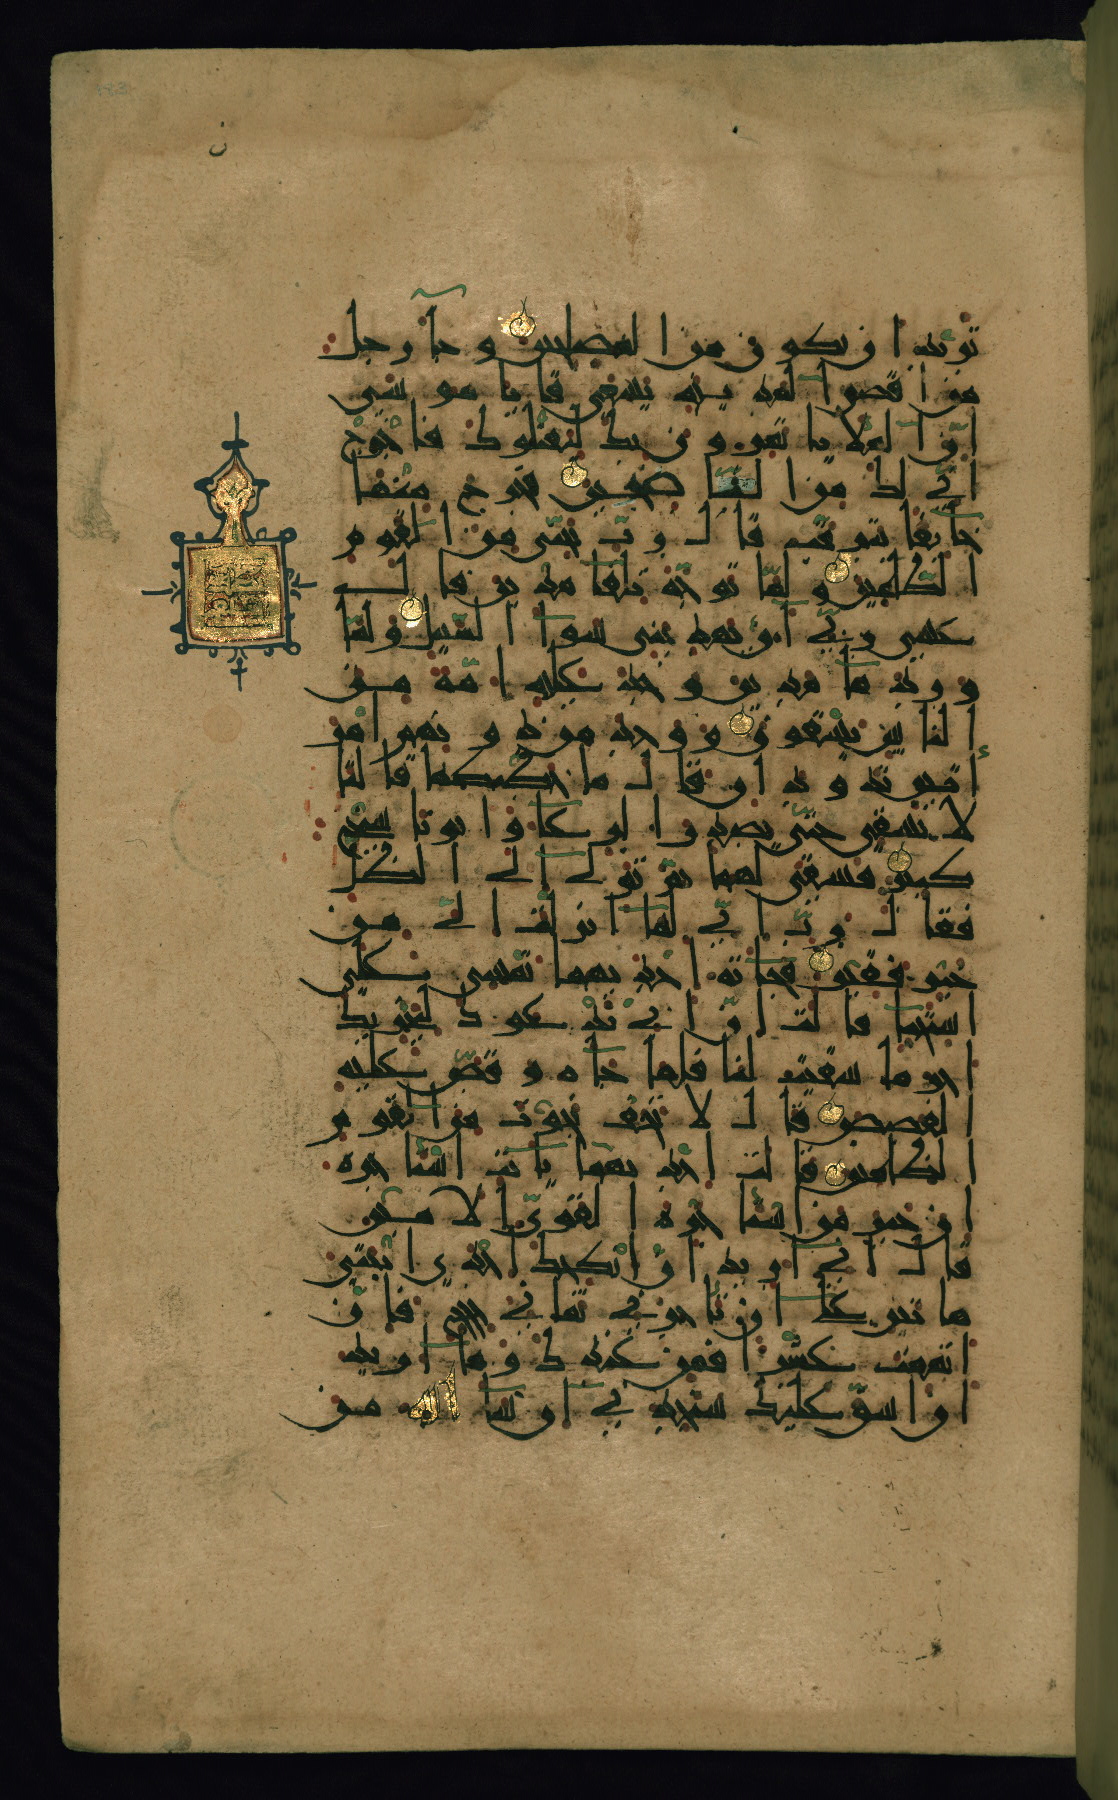 تريد ان تكون من المصلحين وجآ رجل
من اقصا المدينة يسعى قال يا موسى
ان الملا ياتمرون بك ليقتلوك فاخرج
اني لك من النصحين فخرج منها
خائفا يترقب قال رب نجني من القوم
الظلمين ولما توجه تلقا مدين قال
عسى ربي ان يهديني سوا السبيل ولما
ورد ما مدين وجد عليه امة من
الناس يسقون ووجد من دونهم امر
اتين تذودان قال ما خطبكما قالتا
لا نسقي حتى يصدر الرعا وابونا شيخ
كبير فسقى لهما ثم تولى الى الظل
فقال رب اني لما انزلت الي من
خير فقير فجاته احديهما تمشي على
استحيا قالت ان ابي يدعوك ليجزيك
اجر ما سقيت لنا فلما جاه وقص عليه
القصص قال لا تخف نجوت من القوم
الظلمين قالت احديهما يابت استاجره
ان خير من استاجرت القوي الامين
قال اني اريد ان انكحك احدى ابنتي
هاتين على ان تاجرني ثماني حجج فان
اتممت عشرا فمن عندك وما اريد
ان اشق عليك ستجدني ان شا الله من